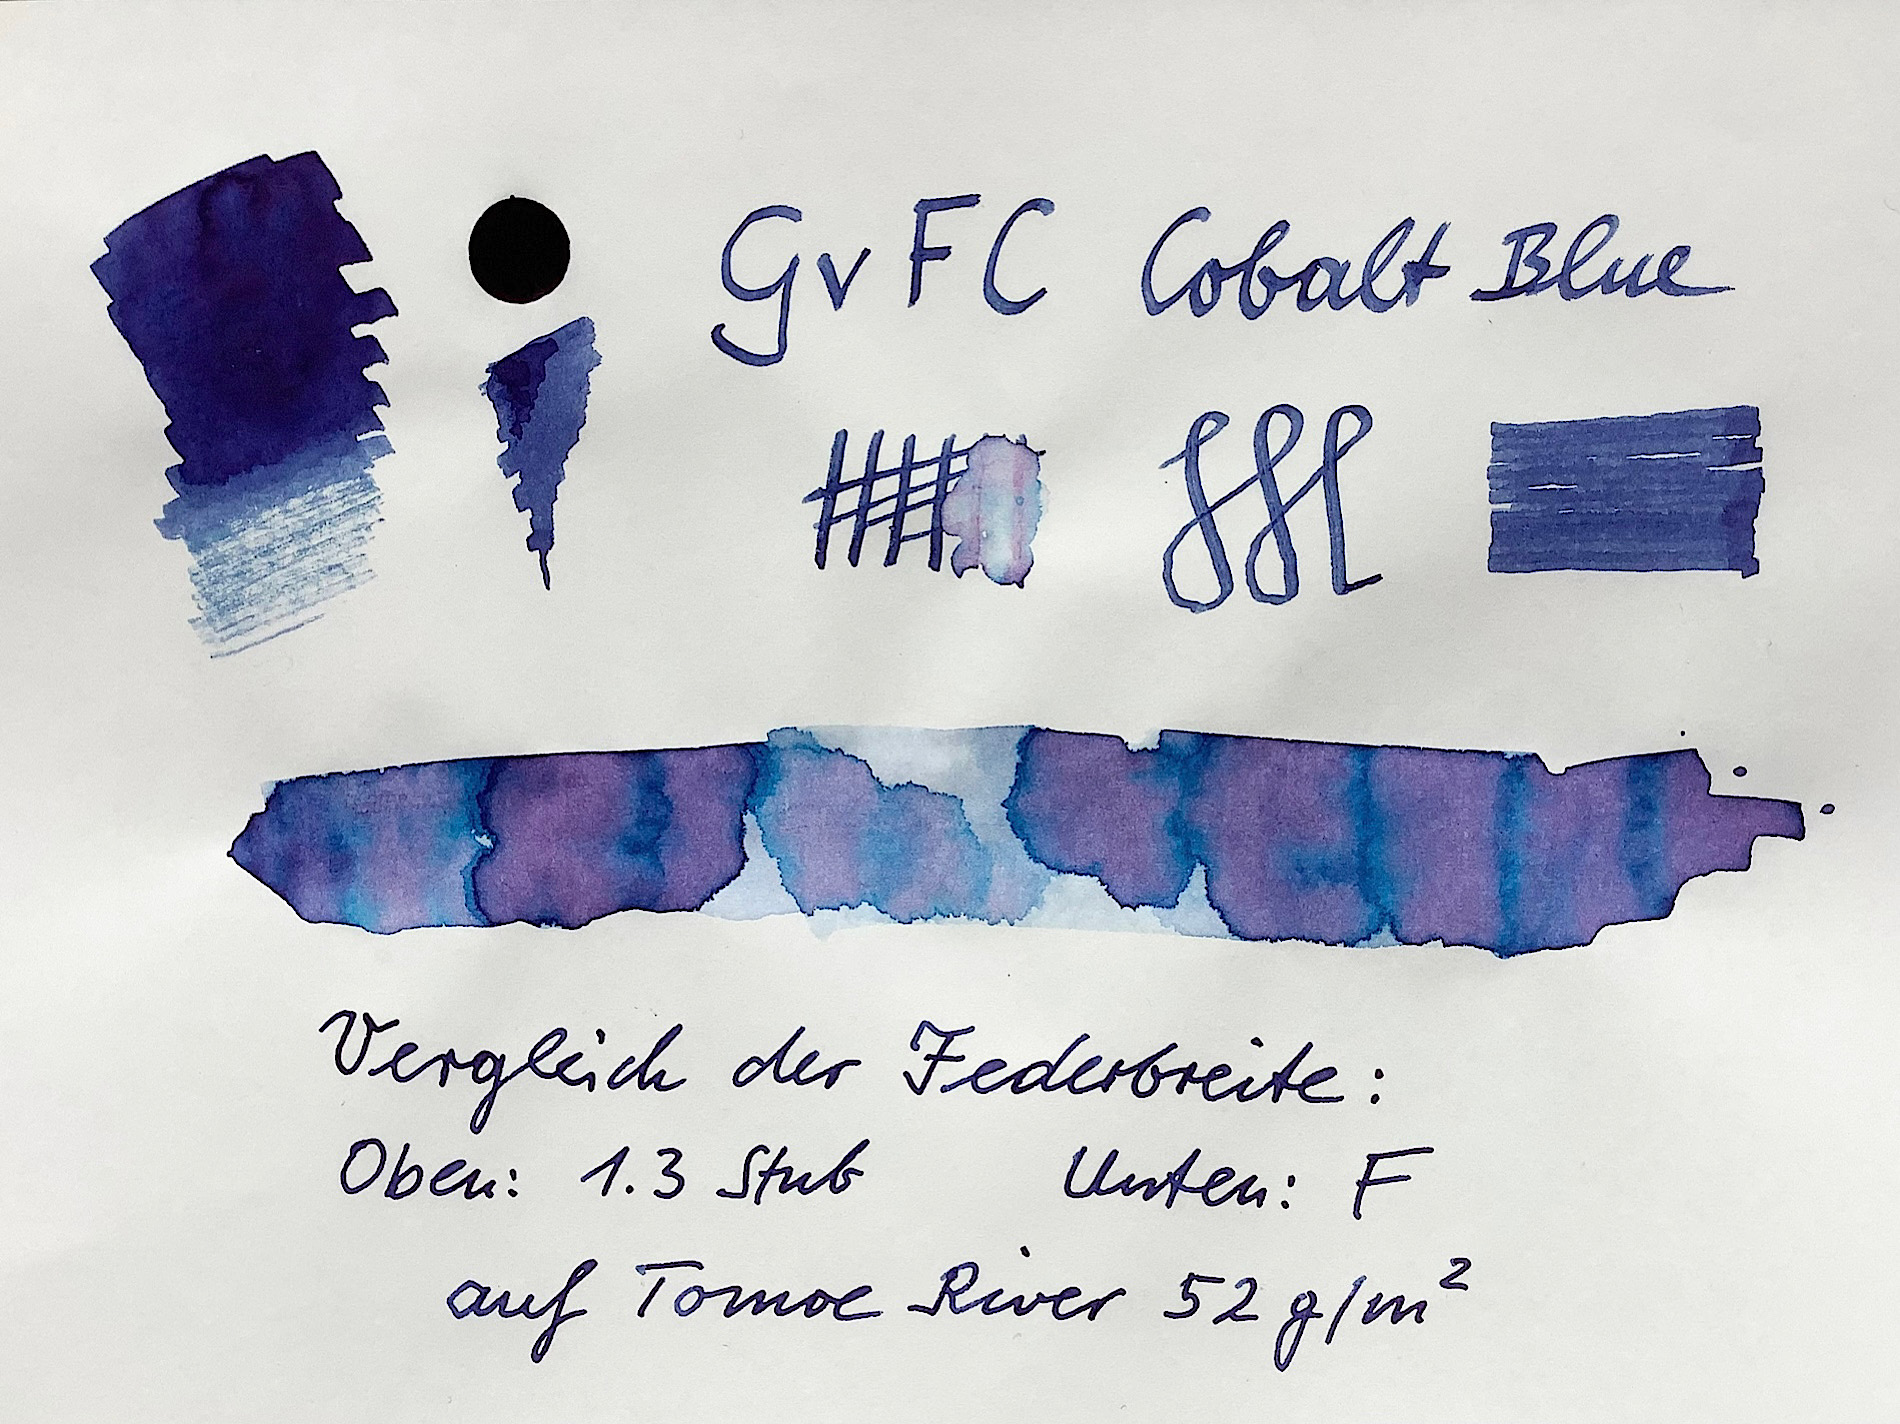 GvFC Cobalt Blue
Vergleich der Federbreite:
Oben: 1.3 Stub Unten: F
auf Tomoe River 52 g/m²